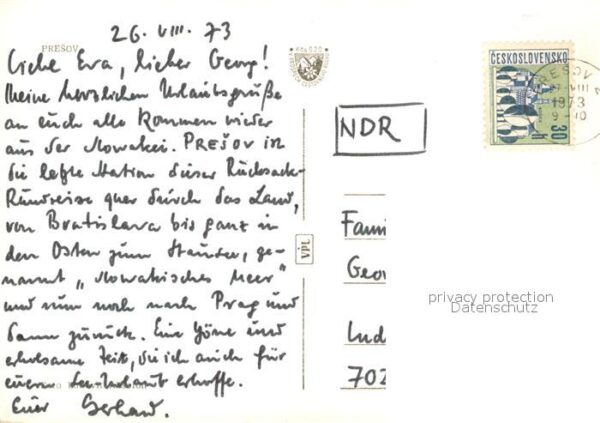 26. VIII. 73
PREŠOV
Liebe Eva, lieber Georg!
Meine herzlichen Urlaubsgrüße
an euch alle kommen wieder
aus der Slowakei. PREŠOV ist
die letzte Station dieser Rucksack-
Rundreise quer durch das Land,
von Bratislava bis ganz in
den Osten zum Stausee, ge-
nannt „Slowakisches Meer"
und nun noch nach Prag und
dann zurück. Eine schöne und
erholsame Zeit, die ich auch für
euren Urlaub erhoffe.
Euer Gerhard.
VPL
ČESKOSLOVENSKO
30 h
PREŠOV
VIII
1973
NDR
Fami
Geor
Lud
702
privacy protection
Datenschutz